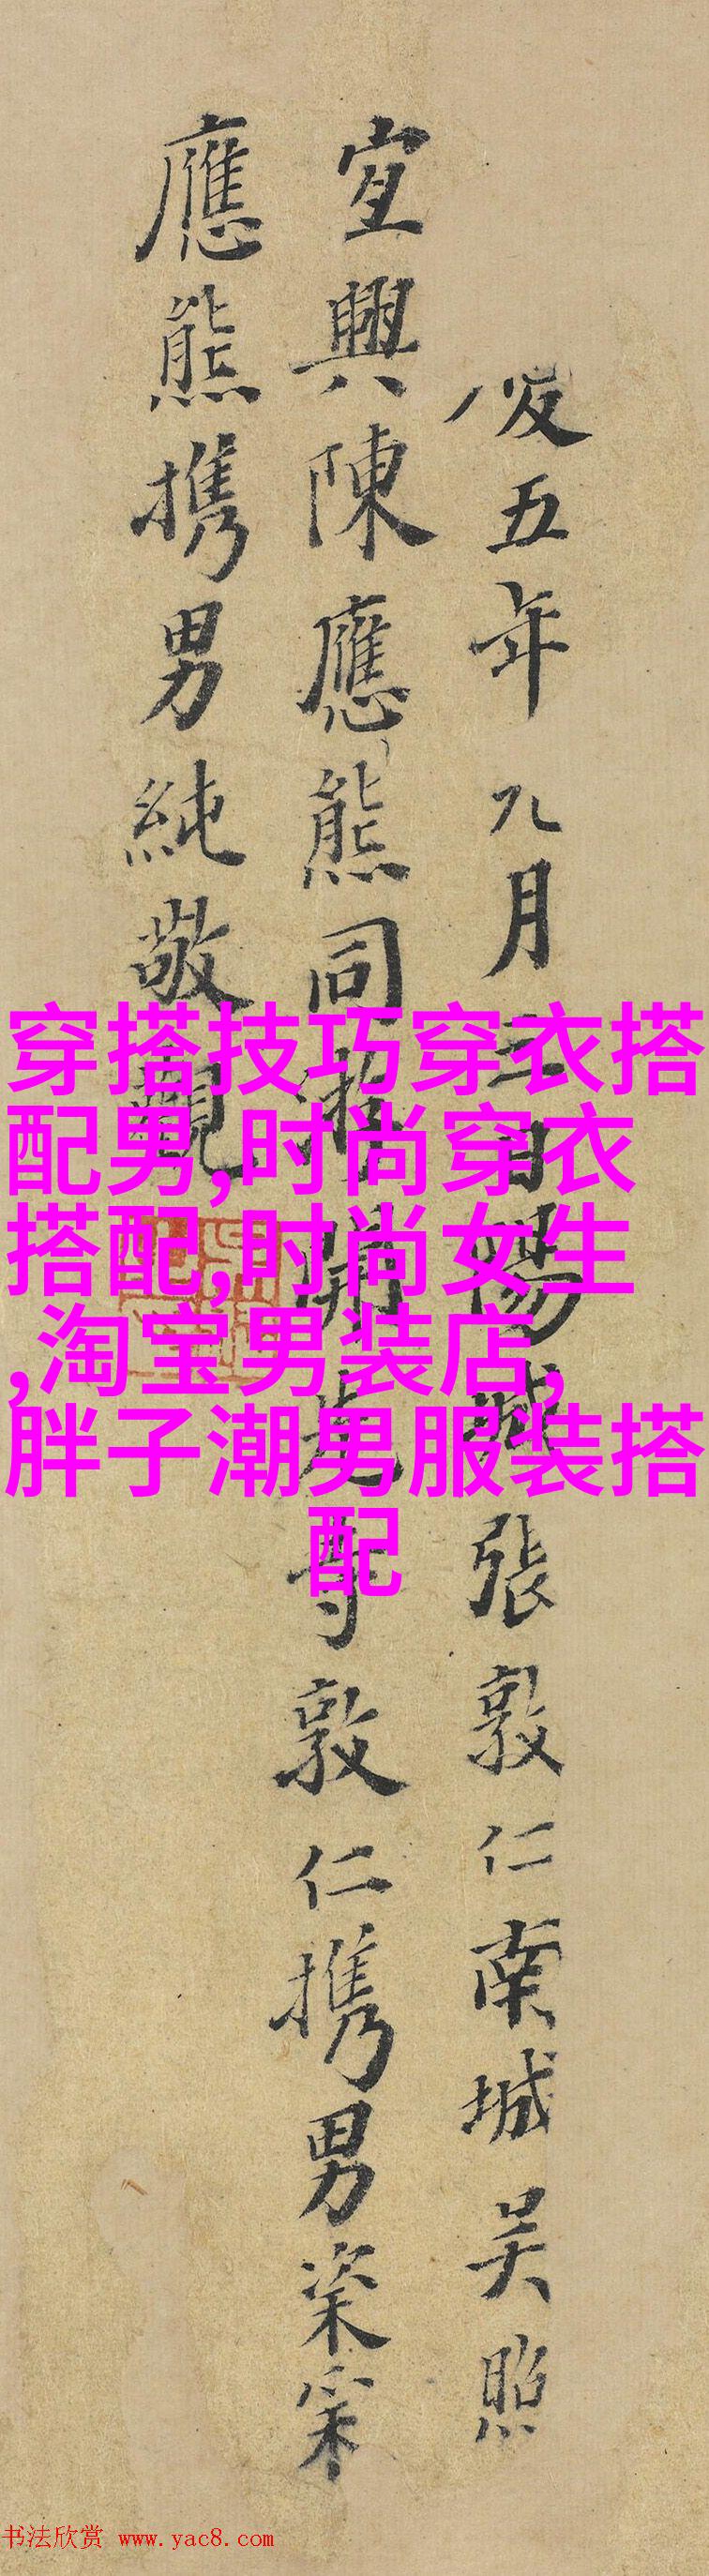 五年九月三日陽城張敦仁南城吴照
宜興陳應熊同游開元寺敦仁携男粢寀
應熊携男純敬觀
穿搭技巧穿衣搭
配男,时尚穿衣
搭配,时尚女生
,淘宝男装店,
胖子潮男服装搭
配
书法欣赏 www.yac8.com